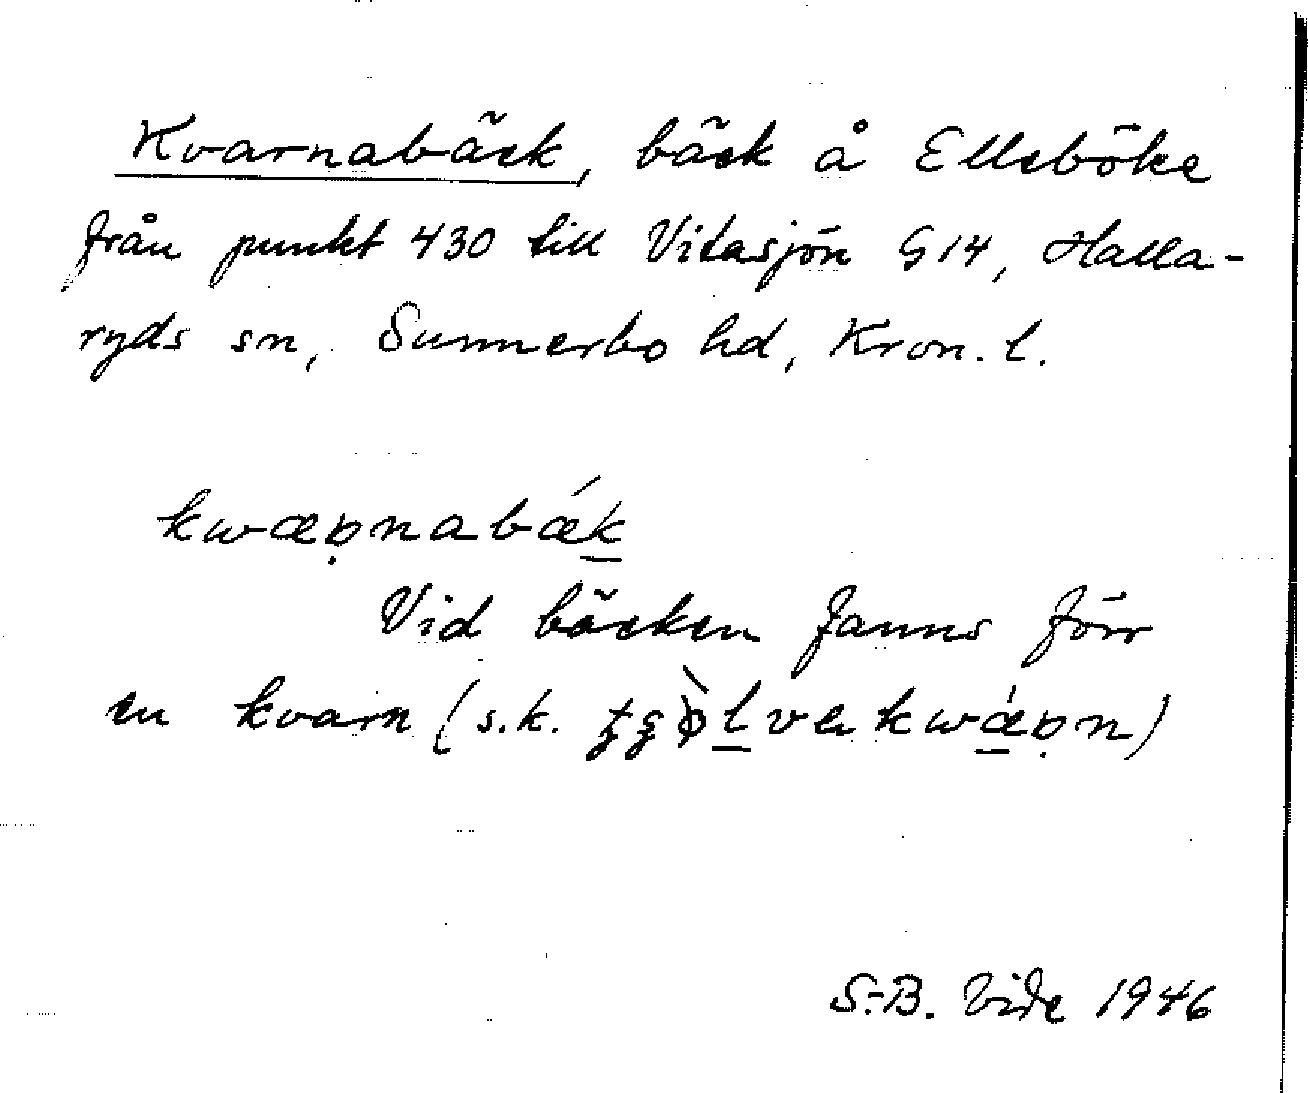 Kvarnabäck, bäck å Elleböke
från punkt 430 till Vitasjön G 14, Halla-
ryds sn, Sunnerbo hd, Kron. l.
kwæꞛnabǽk
Vid bäcken fanns förr
en kvarn (s.k.
S.-B. Vide 1946